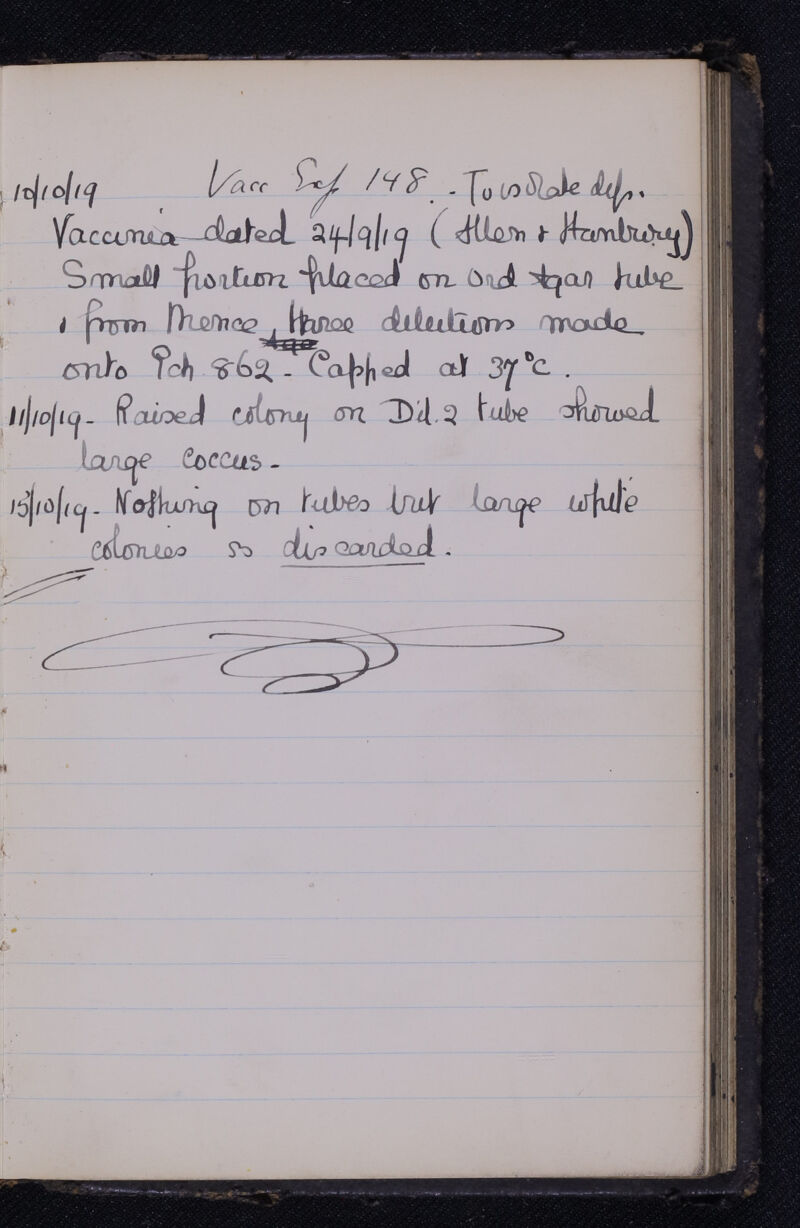 10/10/19 Vacc Exp 148. - To isolate dip.
Vaccinia dated 24/9/19 (Allen & Hanbury)
Small portion placed on ord agar tube
& from thence, three dilutions made
onto Pch 862 - Capped at 37°C.
11/10/19 - Raised colony on Dil. 2 tube showed
large coccus -
15/10/19 - Nothing on tubes but large white
colonies so discarded.